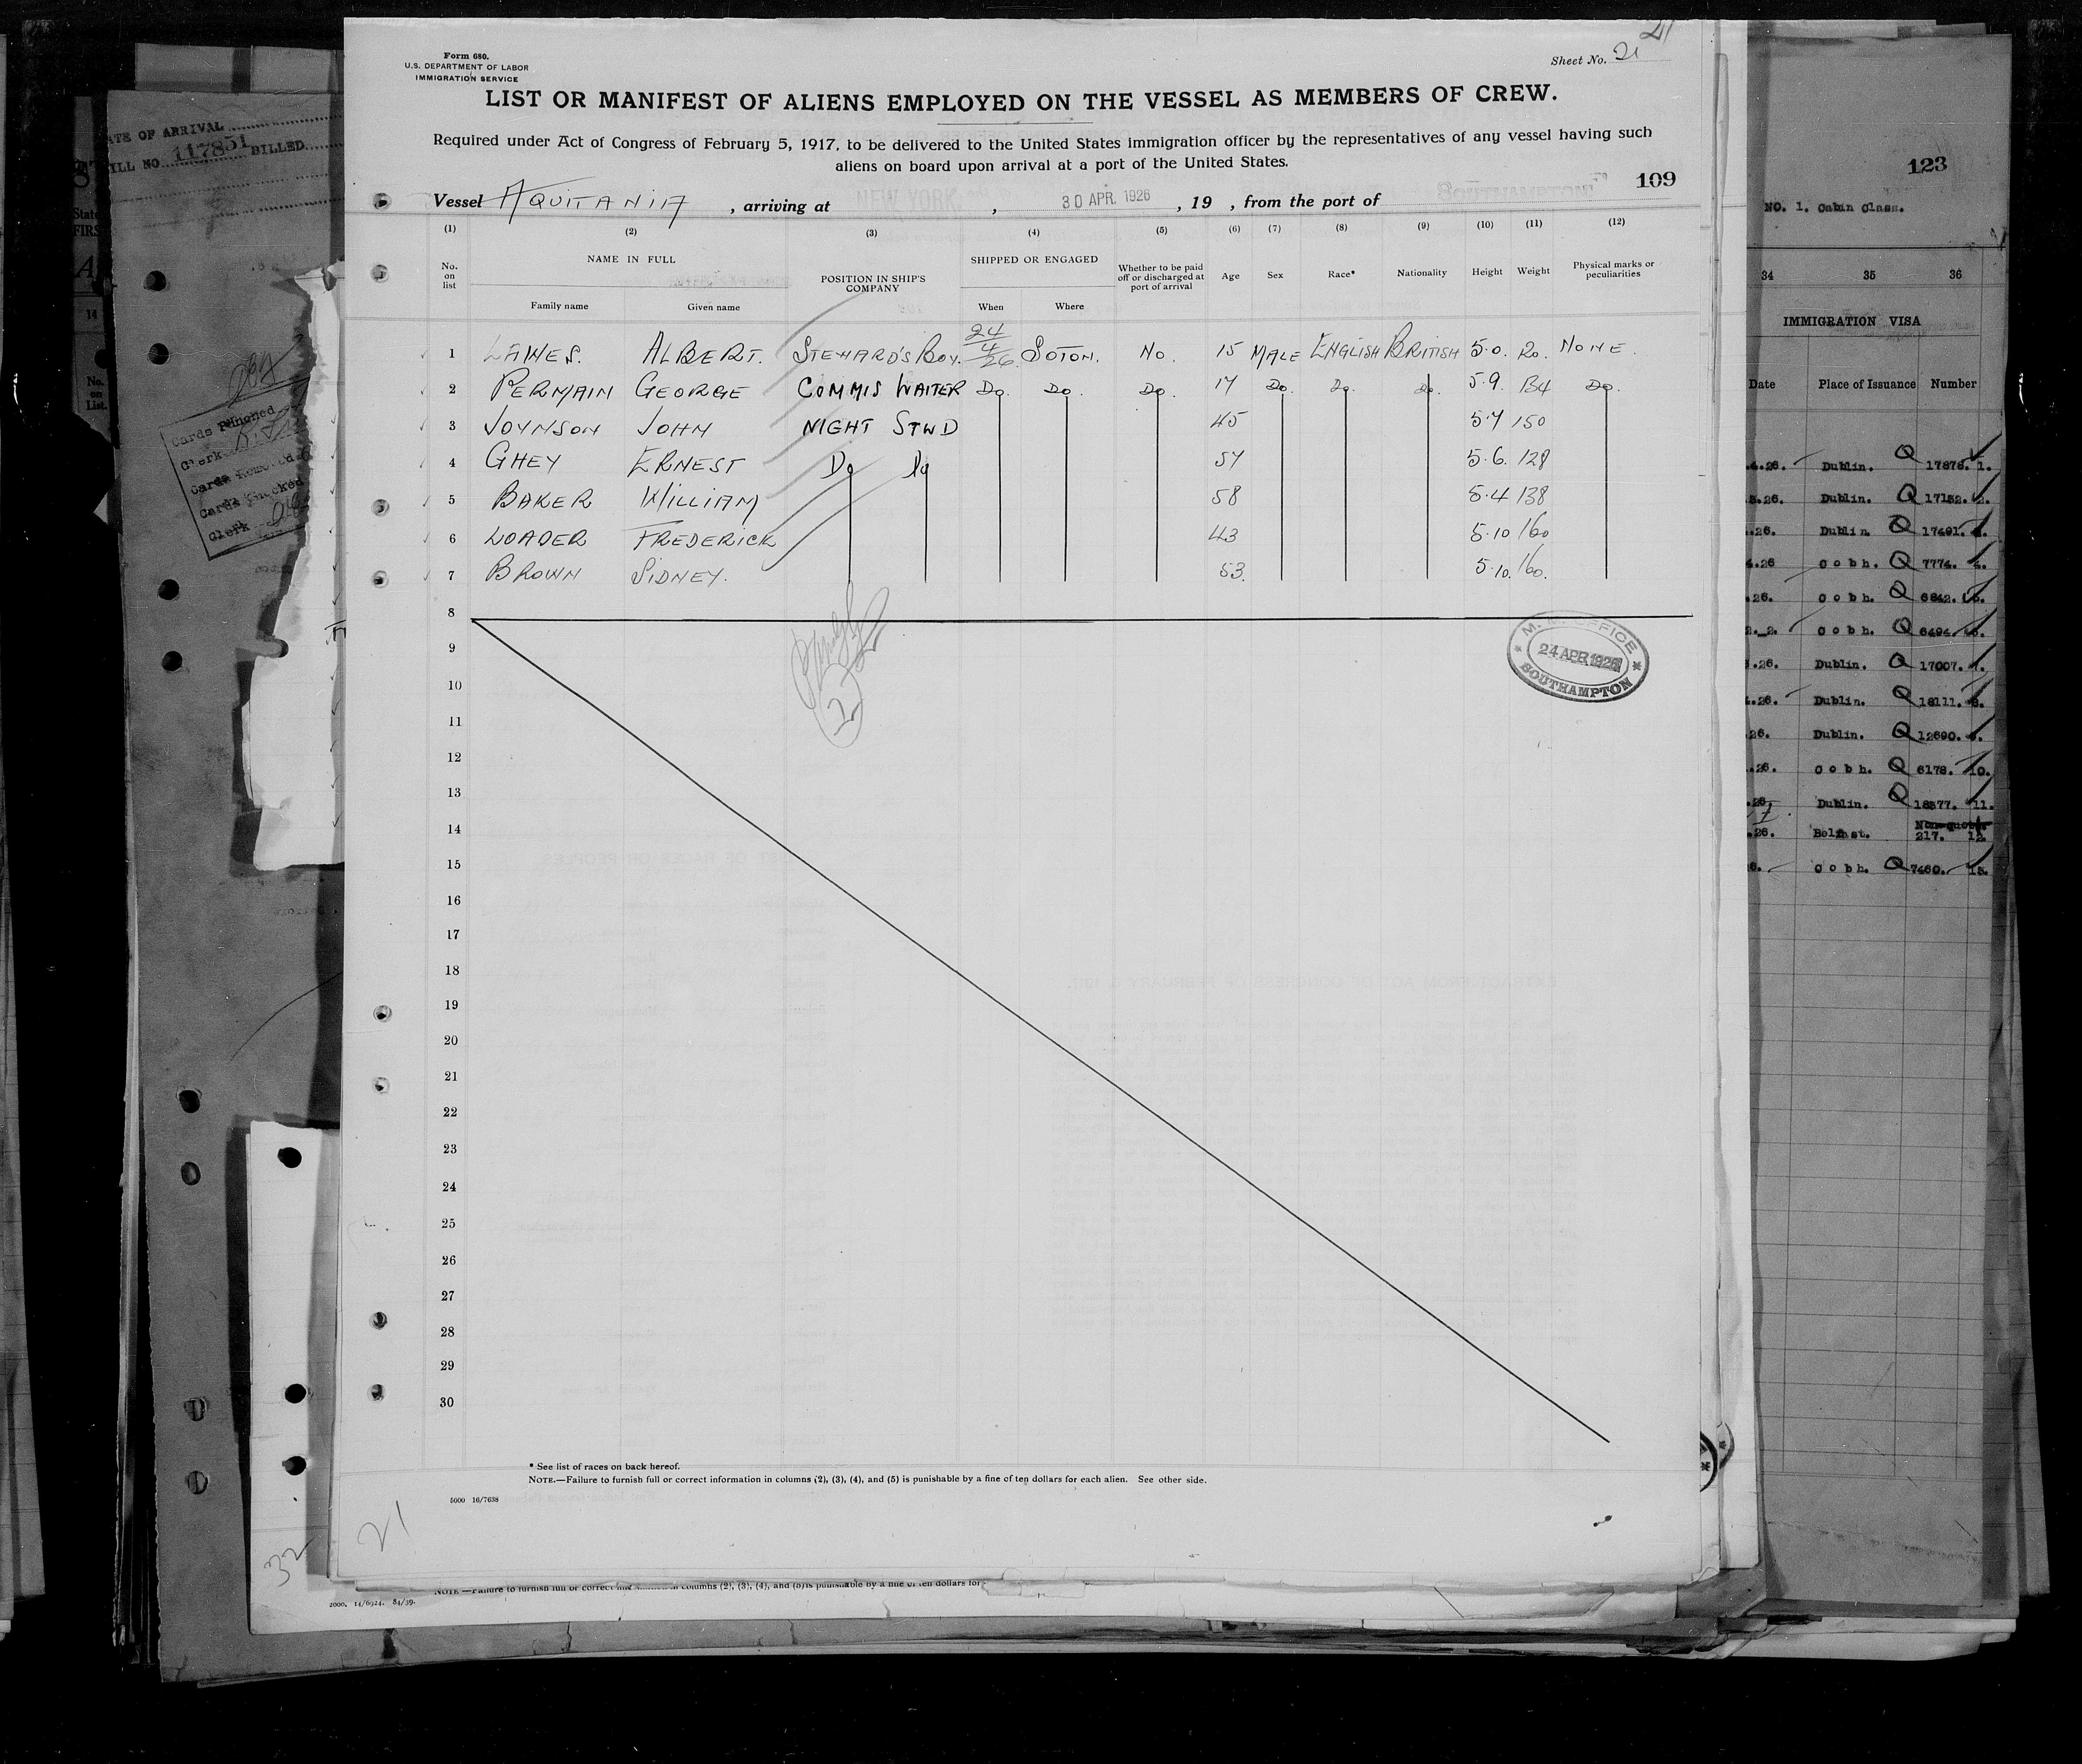 Form 680.
U.S. DEPARTMENT OF LABOR
IMMIGRATION SERVICE
Sheet No. 21
21
LIST OR MANIFEST OF ALIENS EMPLOYED ON THE VESSEL AS MEMBERS OF CREW.
Required under Act of Congress of February 5, 1917, to be delivered to the United States immigration officer by the representatives of any vessel having such
aliens on board upon arrival at a port of the United States.
109
Vessel AQUITANIA, arriving at NEW YORK, 30 APR. 1926, 19 , from the port of SOUTHAMPTON
(1) (2) (3) (4) (5) (6) (7) (8) (9) (10) (11) (12)
No. on list NAME IN FULL POSITION IN SHIP'S COMPANY SHIPPED OR ENGAGED Whether to be paid off or discharged at port of arrival Age Sex Race* Nationality Height Weight Physical marks or peculiarities
Family name Given name When Where
1 LAWES. ALBERT. STEWARD'S BOY. 24/4/26 SOTON. NO. 15 MALE ENGLISH BRITISH 5.0. NONE.
2 PERMAIN GEORGE COMMIS WAITER Do. Do. Do. 17 Do. Do. Do. 5.9. 134 Do.
3 JOYNSON JOHN NIGHT STWD 45 5.7 150
4 GHEY ERNEST Do Do 57 5.6. 128
5 BAKER WILLIAM 58 5.4 138
6 LOADER FREDERICK 43 5.10 160
7 BROWN SIDNEY. 53. 5.10. 160.
8
9
10
11
12
13
14
15
16
17
18
19
20
21
22
23
24
25
26
27
28
29
30
M. M. OFFICE
24 APR 1926
SOUTHAMPTON
* See list of races on back hereof.
NOTE.—Failure to furnish full or correct information in columns (2), (3), (4), and (5) is punishable by a fine of ten dollars for each alien. See other side.
5000 16/7638
21
32
2000. 14/6924. 84/39.
ATE OF ARRIVAL
ILL NO. 117851 BILLED
Cards Pinioned
Clerk
Cards Removed
Cards Checked
Clerk
14
No. on List
123
NO. 1. Cabin Class.
34 35 36
IMMIGRATION VISA
Date Place of Issuance Number
.4.26. Dublin. Q 17876. 1.
.26. Dublin. Q 17152. 2.
.26. Dublin Q 17491.
.26 Cobh. Q 7774. 4.
.26. Cobh. Q 6842. 5.
Cobh. Q 6494.
.26. Dublin. Q 17007. 7.
.26. Dublin. Q 18111. 8.
26. Dublin. Q 12690. 9.
.26. Cobh. Q 6178. 10.
.26. Dublin. Q 18577. 11.
.26. Belfast. Non-quota 217. 12.
6. Cobh. Q 7460. 13.